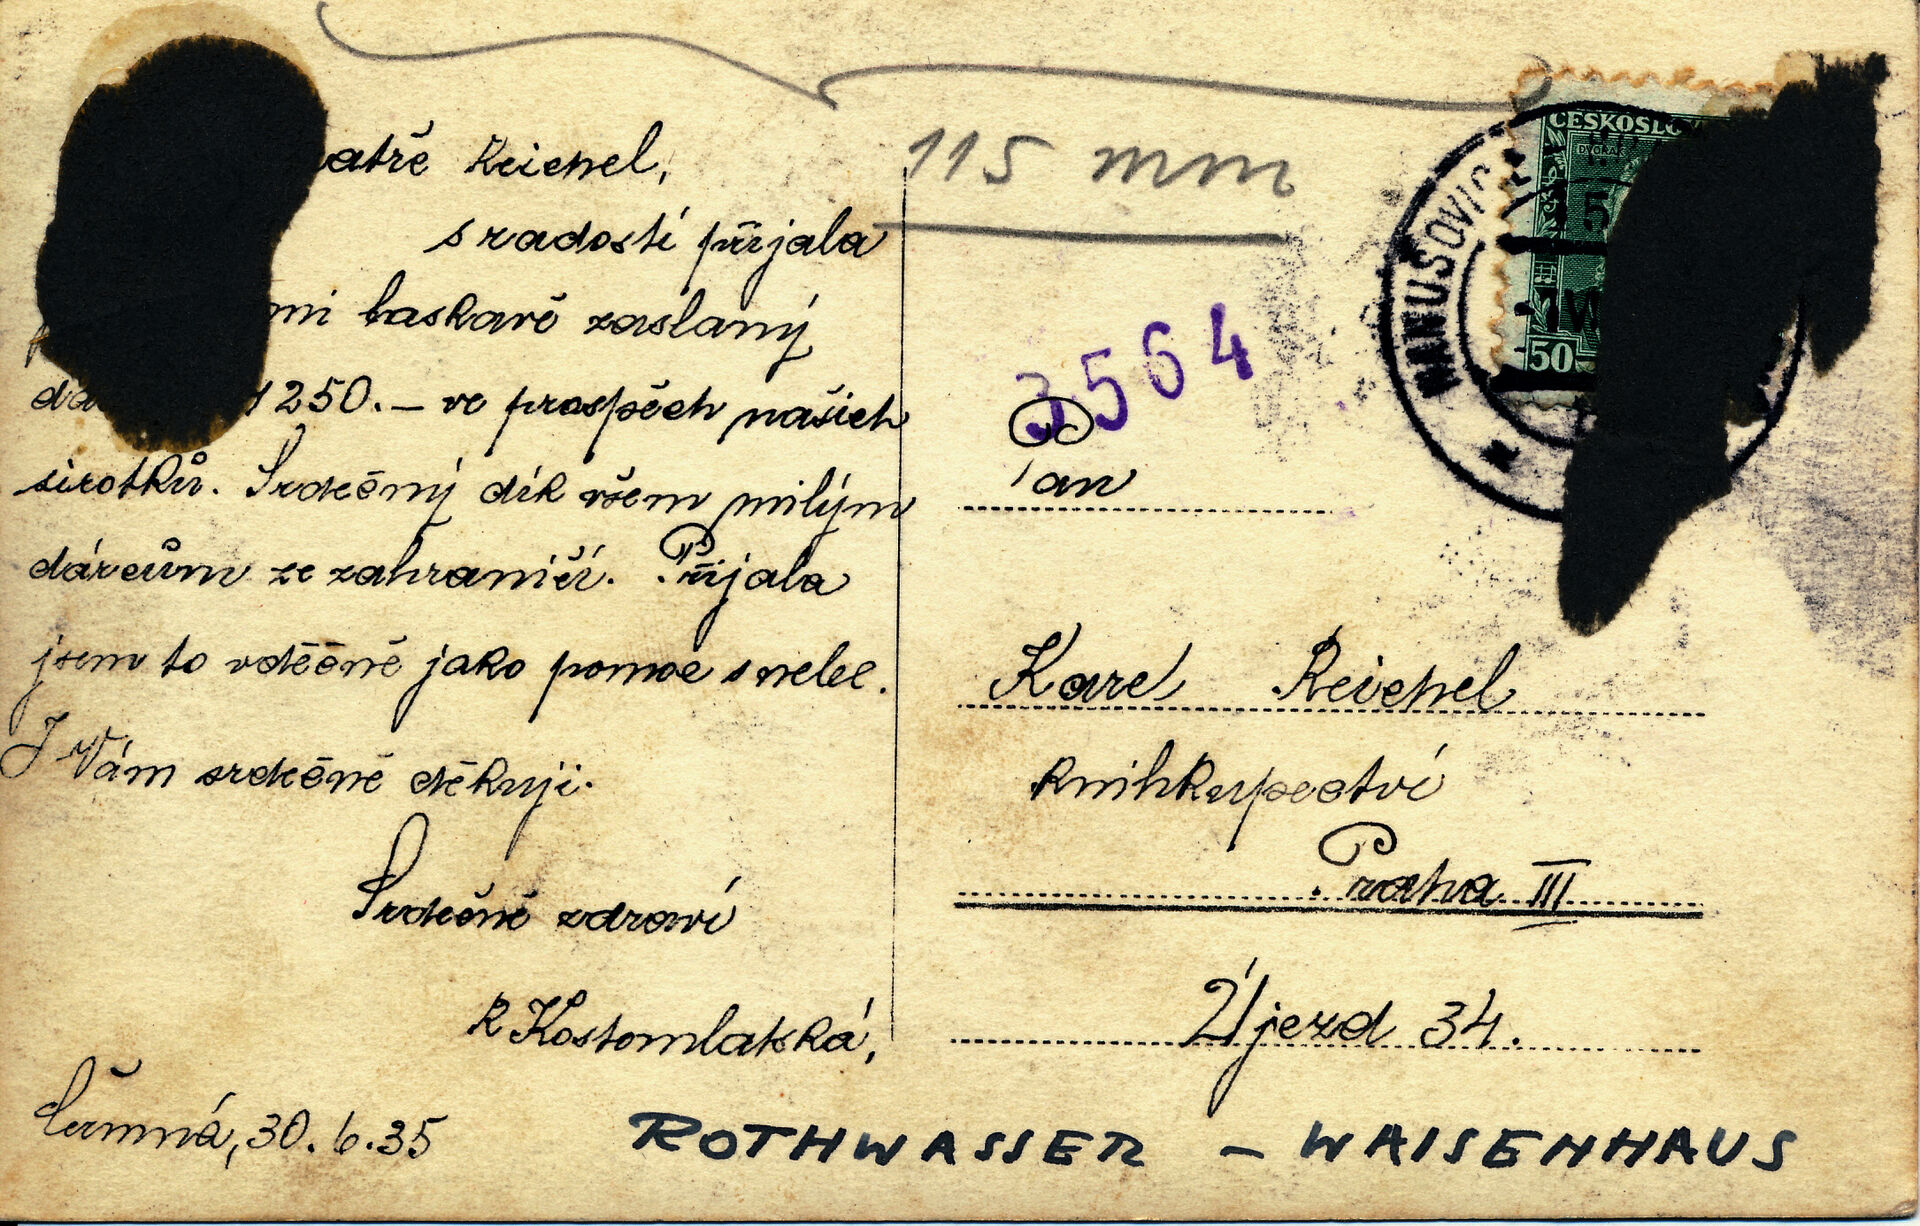 atře Reichel,
s radostí přijala
mi laskavě zaslaný
250.— ve prospěch našich
sirotků. Srdečný dík všem milým
dárcům ze zahraničí. Přijala
jsem to vděčně jako pomoc s nebe.
I Vám srdečně děkuji.
Srdečně zdraví
R Kostomlatská,
30.6.35
115 mm
3564
ČESKOSLO
DVOŘÁK
50
HANUŠOVIC
Pan
Karel Reichel
knihkupectví
Praha III
Újezd 34.
ROTHWASSER – WAISENHAUS